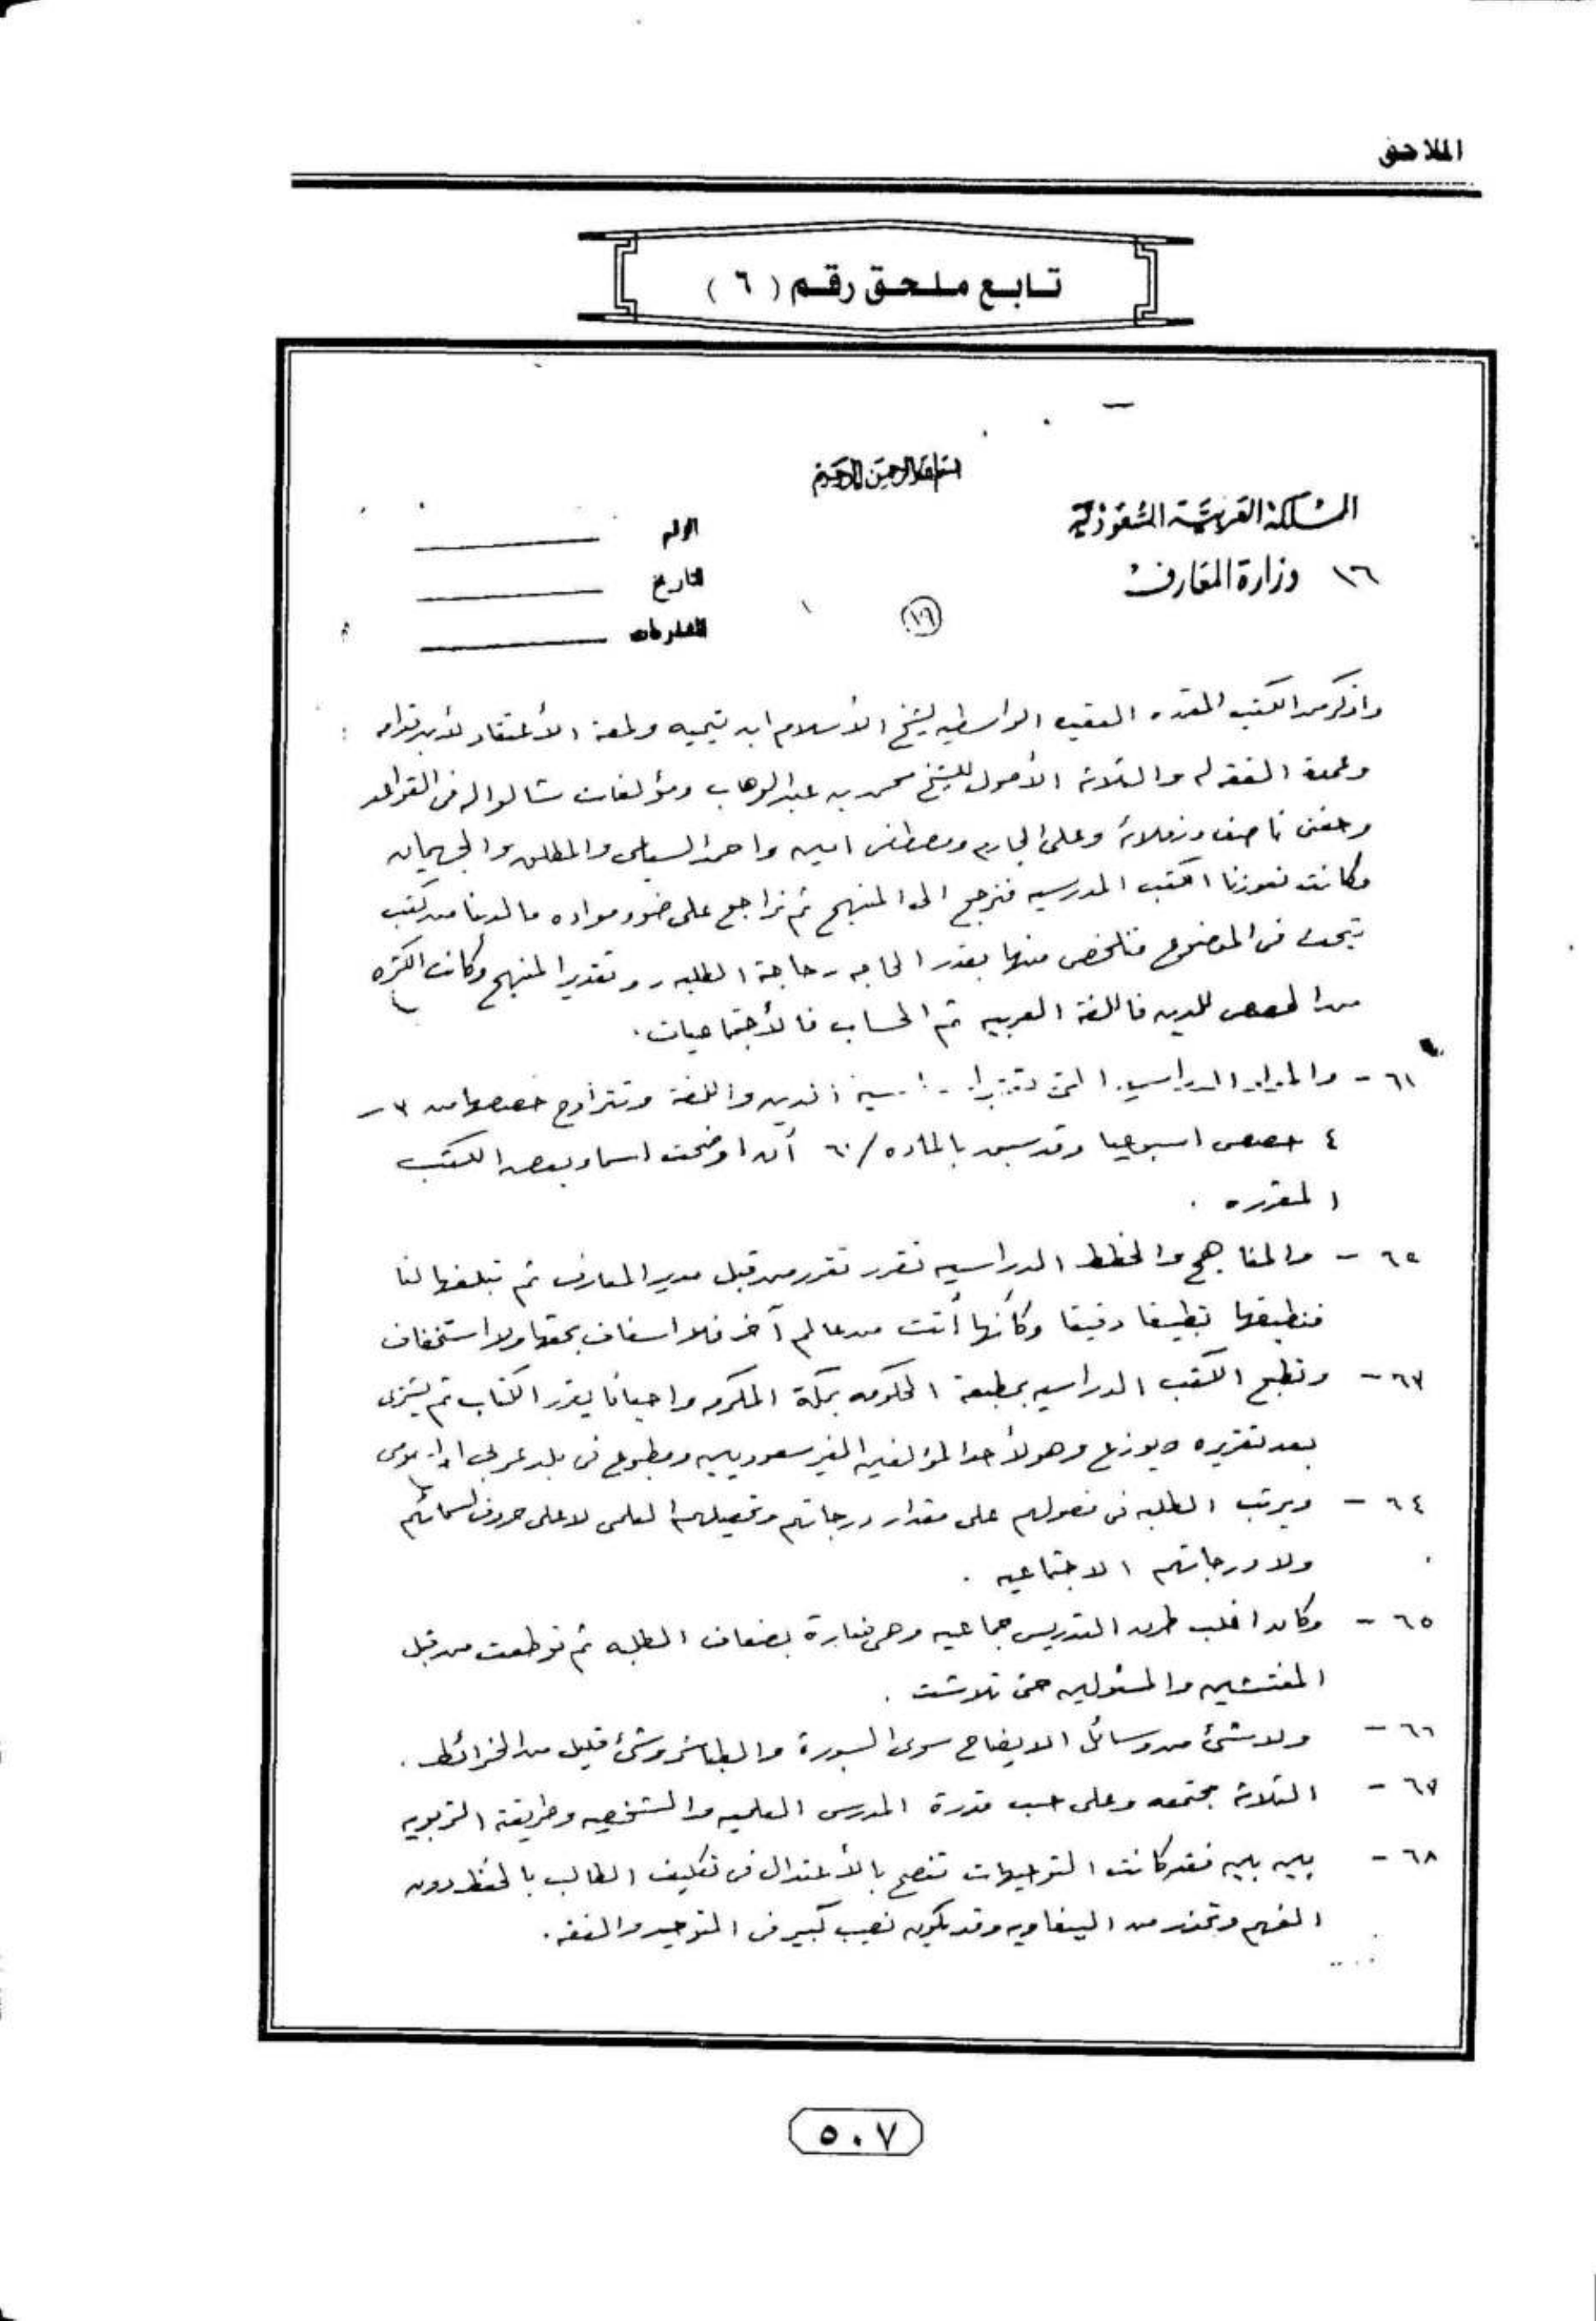 الملاحق
تابع ملحق رقم ( ٦ )
بسم الله الرحمن الرحيم
المملكة العربية السعودية
١٦ وزارة المعارف
الرقم
التاريخ
المشفوعات
١٦
واذكر من الكتب المقرره العقيده الواسطيه لشيخ الأسلام ابن تيميه ولمعة الأعتقاد لأبن قدامه
وعمدة الفقه له والثلاثة الأصول للشيخ محمد بن عبدالوهاب ومؤلفات في القواعد
وحفنى ناصف وزملائه وعلى الجارم ومصطفى امين واحمد السباعى والجهيمان
وكانت تعوزنا الكتب المدرسيه فنرجع الى المنهج ثم نراجع على ضوء مواده مالدينا من كتب
تبحث في الموضوع فنلخص منها بقدر الحاجه - حاجة الطلبه - وتقدير المنهج وكانت الكثره
من الحصص للدين فاللغة العربيه ثم الحساب فالأجتماعيات .
٦١ - والمواد الدراسيه التى الدين واللغة وتتراوح حصصها من ٣ -
٤ حصص اسبوعيا وقد سبق بالماده / ٦٠ أن اوضحت اسماء بعض الكتب
المقرره .
٦٢ - والمناهج والخطط الدراسيه تقرر تقرر من قبل مدير المعارف ثم تبلغها لنا
فنطبقها تطبيقا دقيقا وكأنها أتت من عالم آخر فلا اسفاف بحقها ولا استخفاف
٦٣ - وتطبع الكتب الدراسيه بمطبعة الحكومه بمكة المكرمه واحيانا يقرر الكتاب ثم يشترى
بعد تقريره ويوزع وهو لأحد المؤلفين الغير سعوديين ومطبوع في بلد عربى
٦٤ - ويرتب الطلبه في فصولهم على مقدار درجاتهم وتحصيلهم العلمى لا على حروف اسمائهم
ولا درجاتهم الاجتماعيه .
٦٥ - وكان اغلب طرق التدريس جماعيه وهى ضارة بضعاف الطلبه ثم من قبل
المفتشين والمسئولين حتى تلاشت .
٦٦ - ولا شئ من وسائل الايضاح سوى السبورة والطباشر وشئ قليل من الخرائط .
٦٧ - الثلاثه مجتمعه وعلى حسب قدرة المدرس العلميه والشخصيه وطريقته التربويه
٦٨ - بين بين فقد كانت التوجيهات تنصح بالأعتدال في تكليف الطالب بالحفظ دون
الفهم وتحذر من الببغاويه وقد يكون نصيب كبير في التوحيد والفقه .
٥٠٧